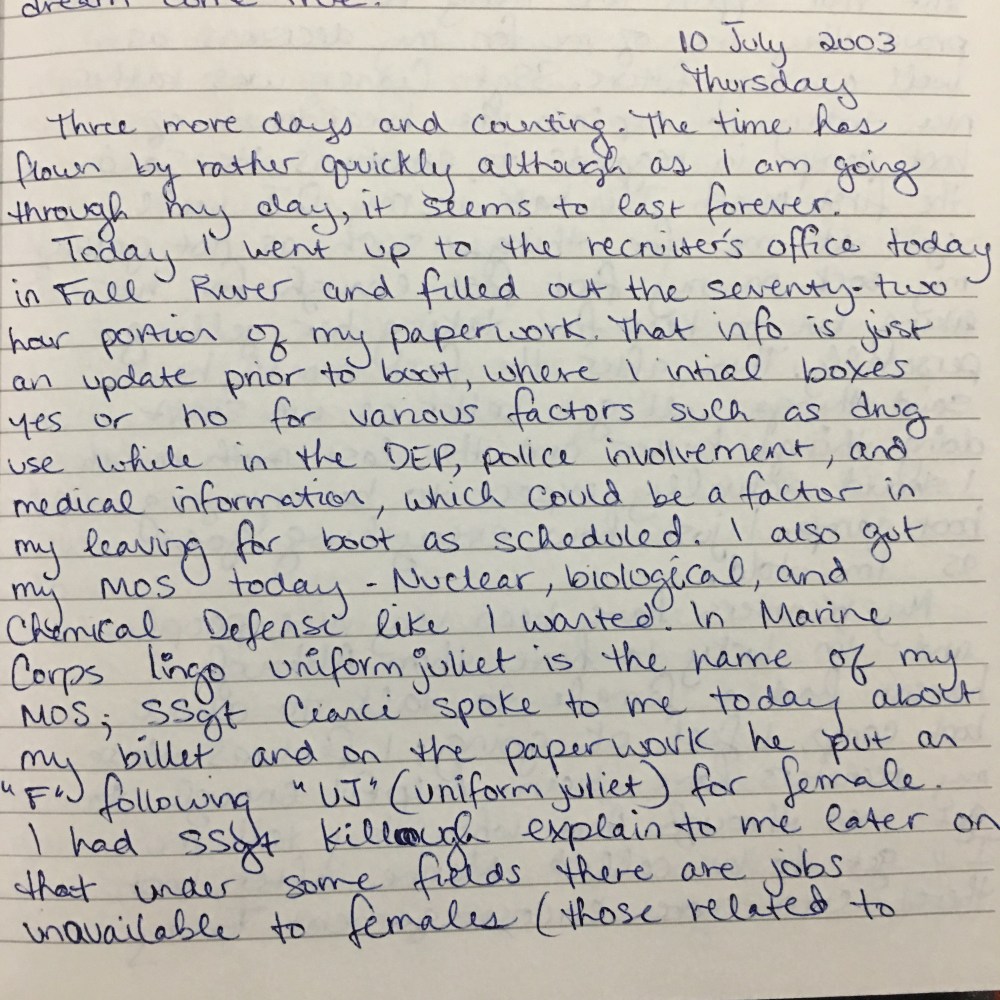 dream come true.
10 July 2003
Thursday
Three more days and counting. The time has
flown by rather quickly although as I am going
through my day, it seems to last forever.
Today I went up to the recruiter's office today
in Fall River and filled out the seventy-two
hour portion of my paperwork. That info is just
an update prior to boot, where I intial boxes
yes or no for various factors such as drug
use while in the DEP, police involvement, and
medical information, which could be a factor in
my leaving for boot as scheduled. I also got
my MOS today - Nuclear, biological, and
Chemical Defense like I wanted. In Marine
Corps lingo uniform juliet is the name of my
MOS; SSgt Cianci spoke to me today about
my billet and on the paperwork he put an
"F" following "UJ" (uniform juliet) for female.
I had SSgt Killough explain to me later on
that under some fields there are jobs
unavailable to females (those related to